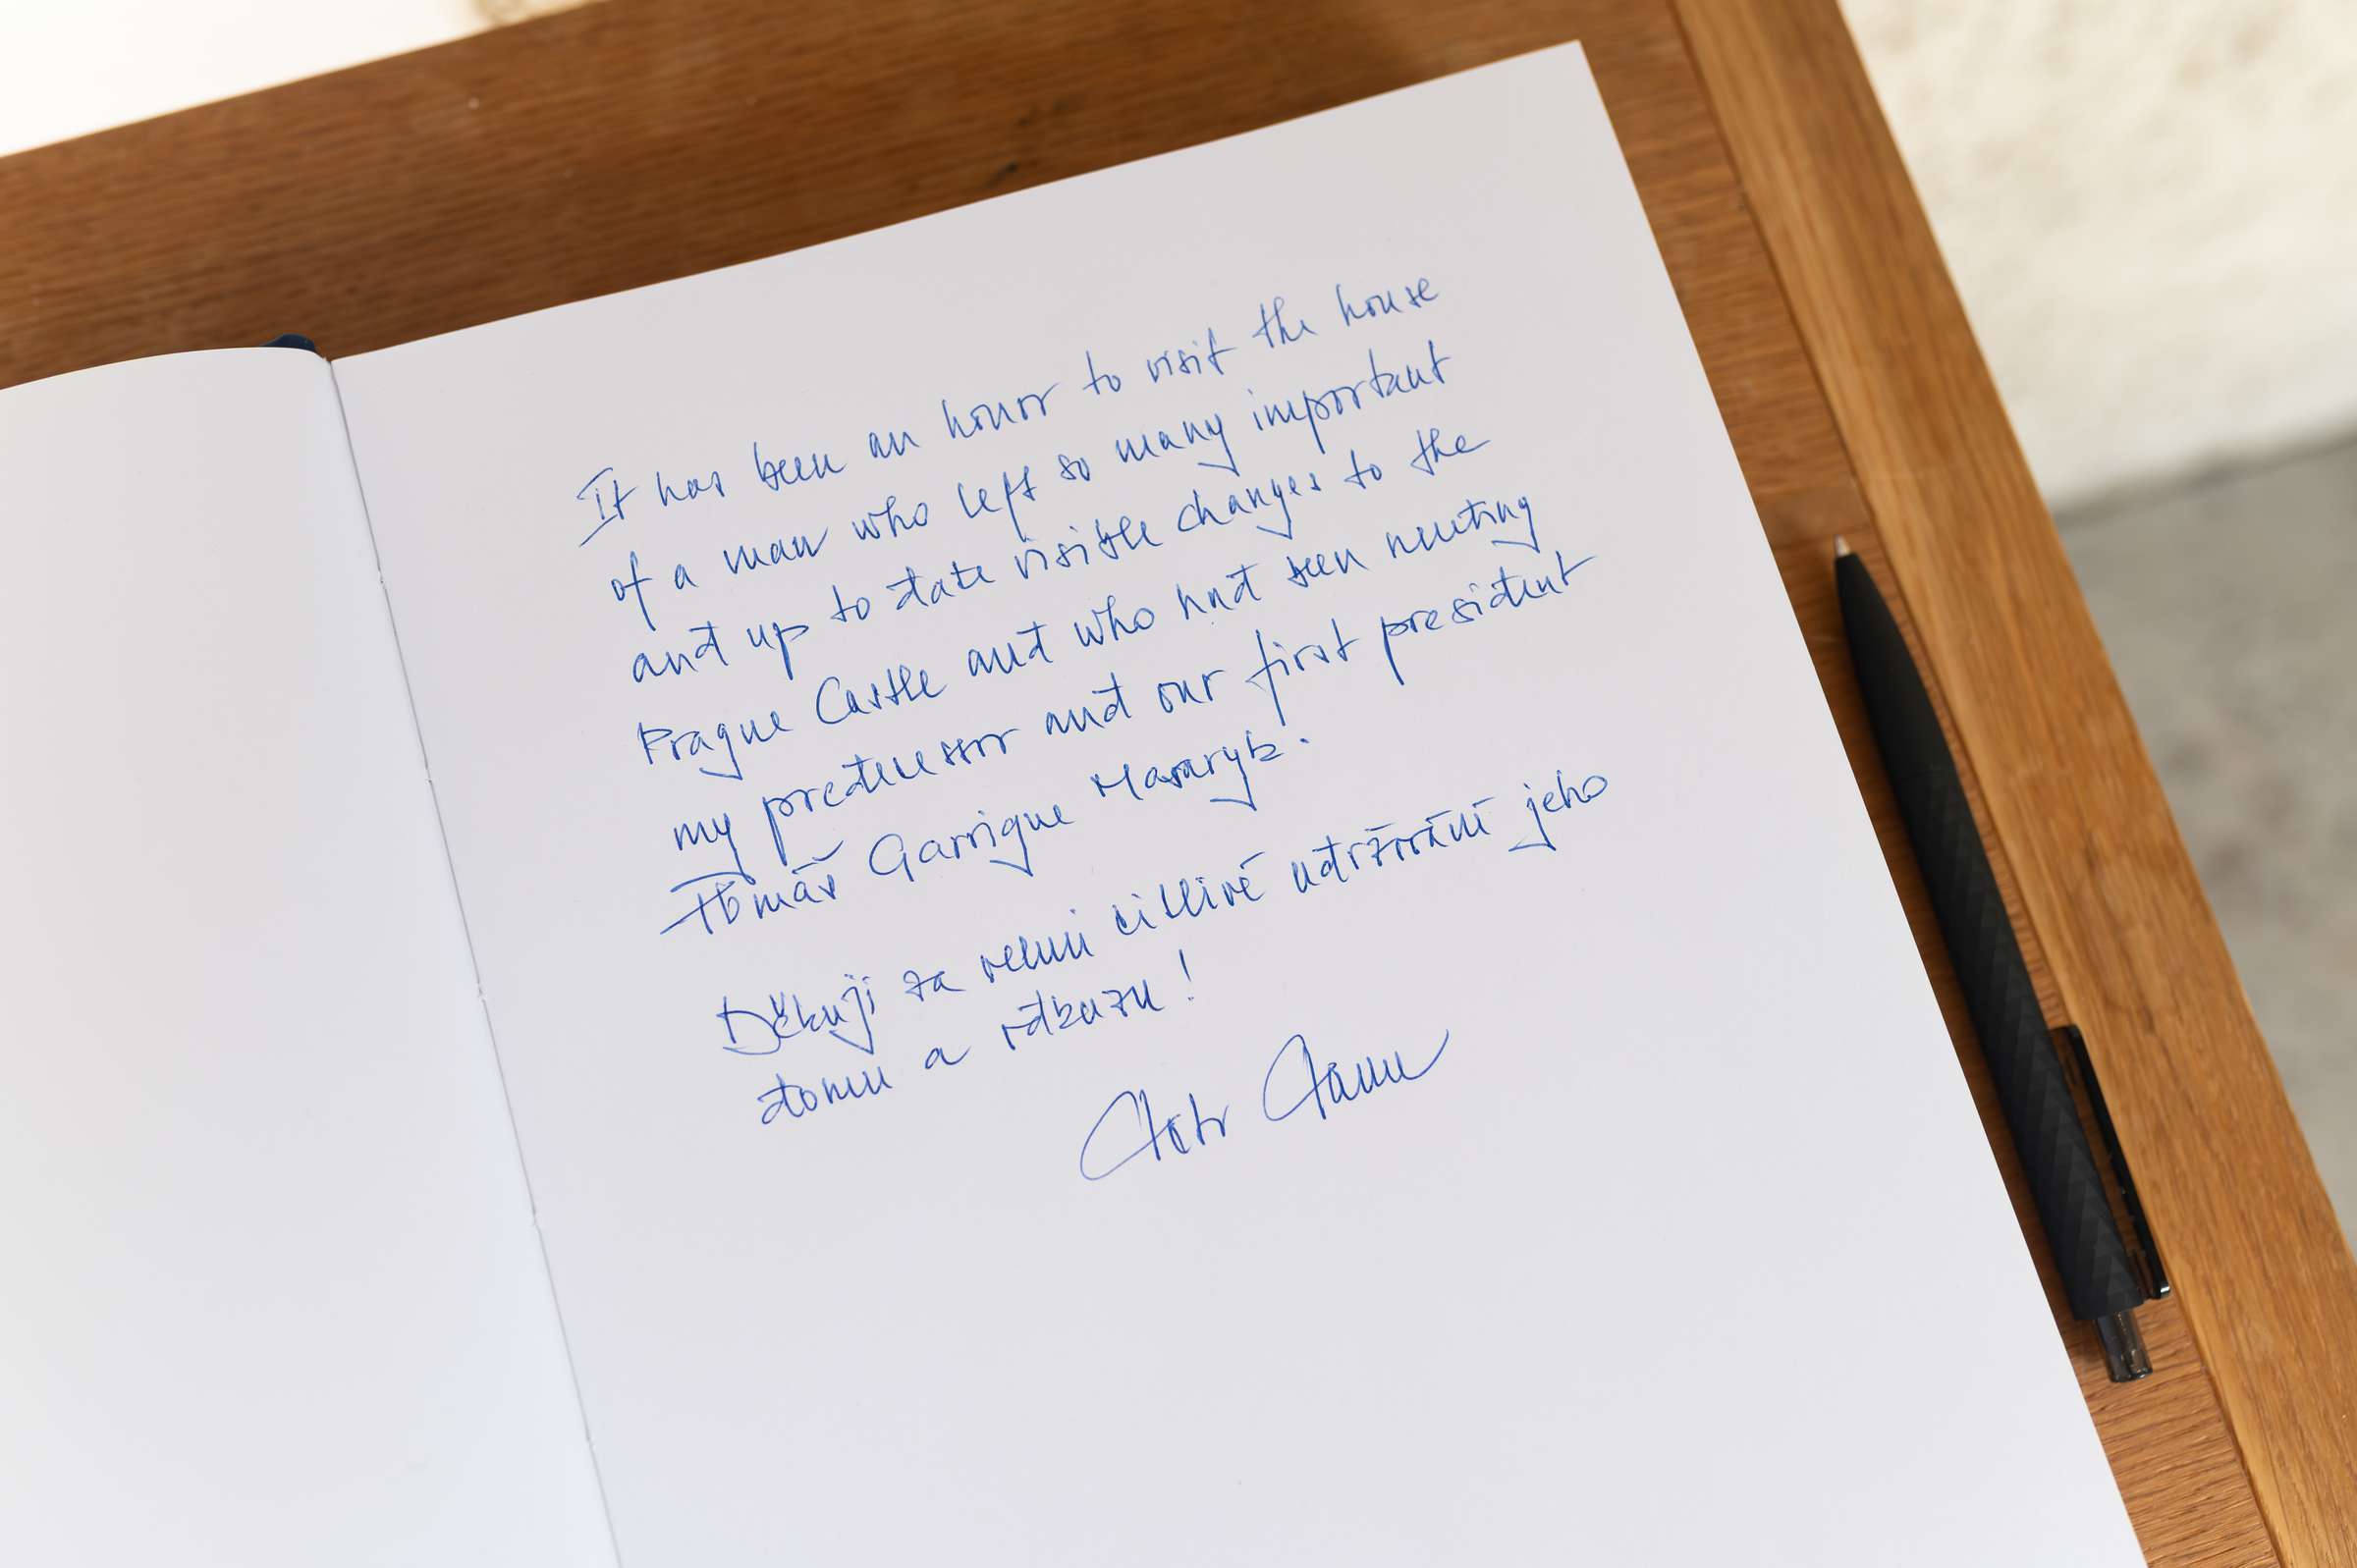 It has been an honor to visit the house
of a man who left so many important
and up to date visible changes to the
Prague Castle and who had been meeting
my predecessor and our first president
Tomáš Garrigue Masaryk.
Děkuji za velmi citlivé udržování jeho
domu a odkazu!
Petr Pavel